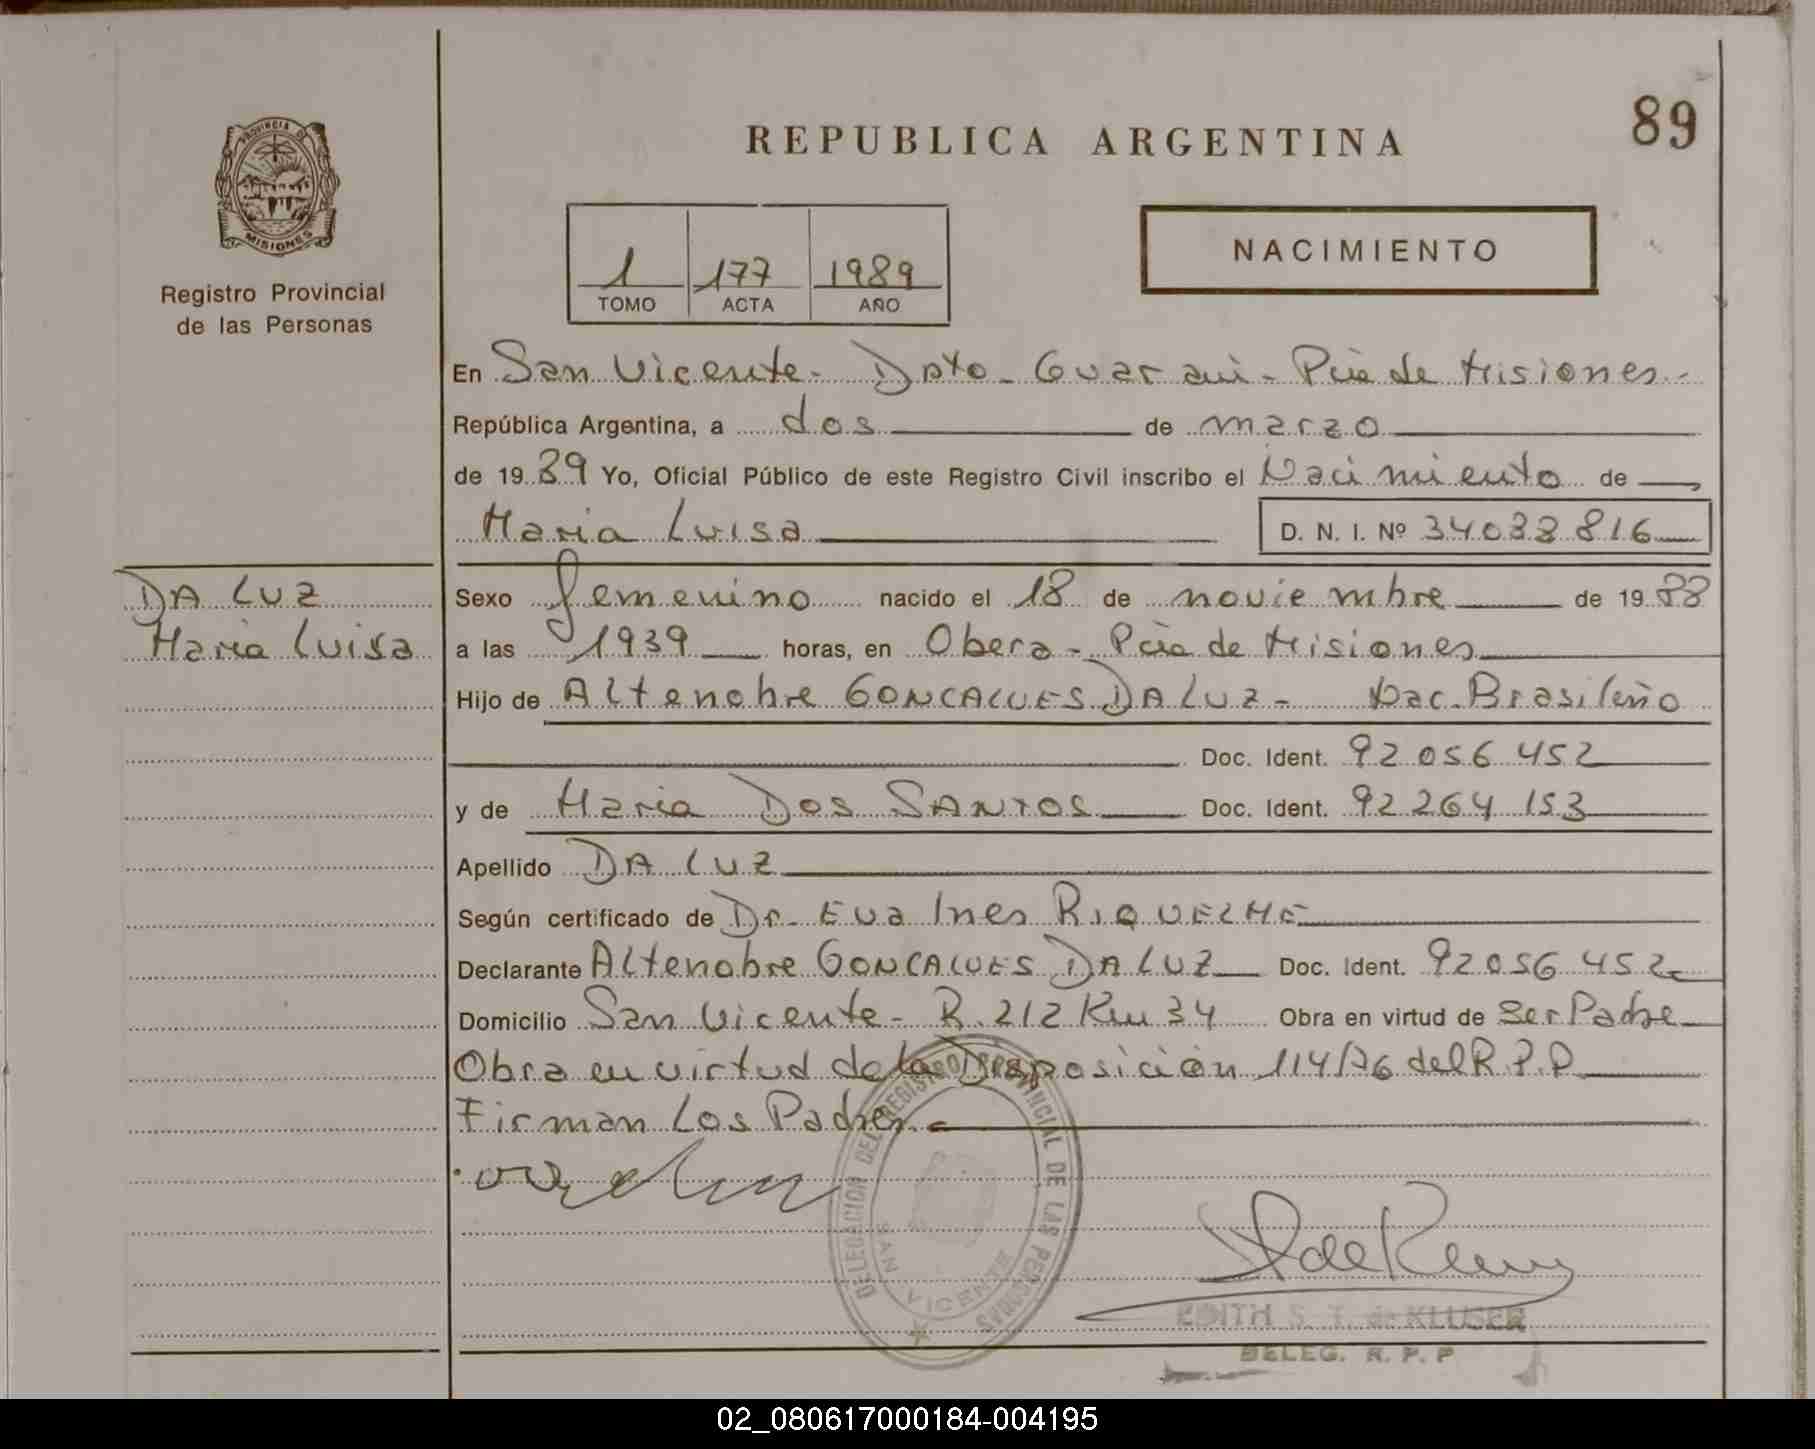 89
REPUBLICA ARGENTINA
PROVINCIA D
MISIONES
Registro Provincial
de las Personas
1 177 1989
TOMO ACTA AÑO
NACIMIENTO
En San Vicente - Dpto - Guarani - Pcia de Misiones -
República Argentina, a dos de marzo
de 1989 Yo, Oficial Público de este Registro Civil inscribo el Nacimiento de
Maria Luisa D. N. I. Nº 34038816
DA LUZ
Maria Luisa
Sexo femenino nacido el 18 de noviembre de 1988
a las 1939 horas, en Obera - Pcia de Misiones
Hijo de Altenobre GONCALVES DA LUZ - Nac. Brasileño
Doc. Ident. 92 056 452
y de Maria DOS SANTOS Doc. Ident. 92 264 153
Apellido DA LUZ
Según certificado de Dr. Eva Ines RIQUELME
Declarante Altenobre GONCALVES DA LUZ Doc. Ident. 92056 452
Domicilio San Vicente - R. 212 Km 34 Obra en virtud de Ser Padre
Obra en virtud de la Disposición 114/76 del R.P.P
Firman Los Padres -
DELEGACION DEL REGISTRO PROVINCIAL DE LAS PERSONAS
SAN VICENTE
EDITH S. T. de KLUSER
DELEG. R. P. P
02_080617000184-004195